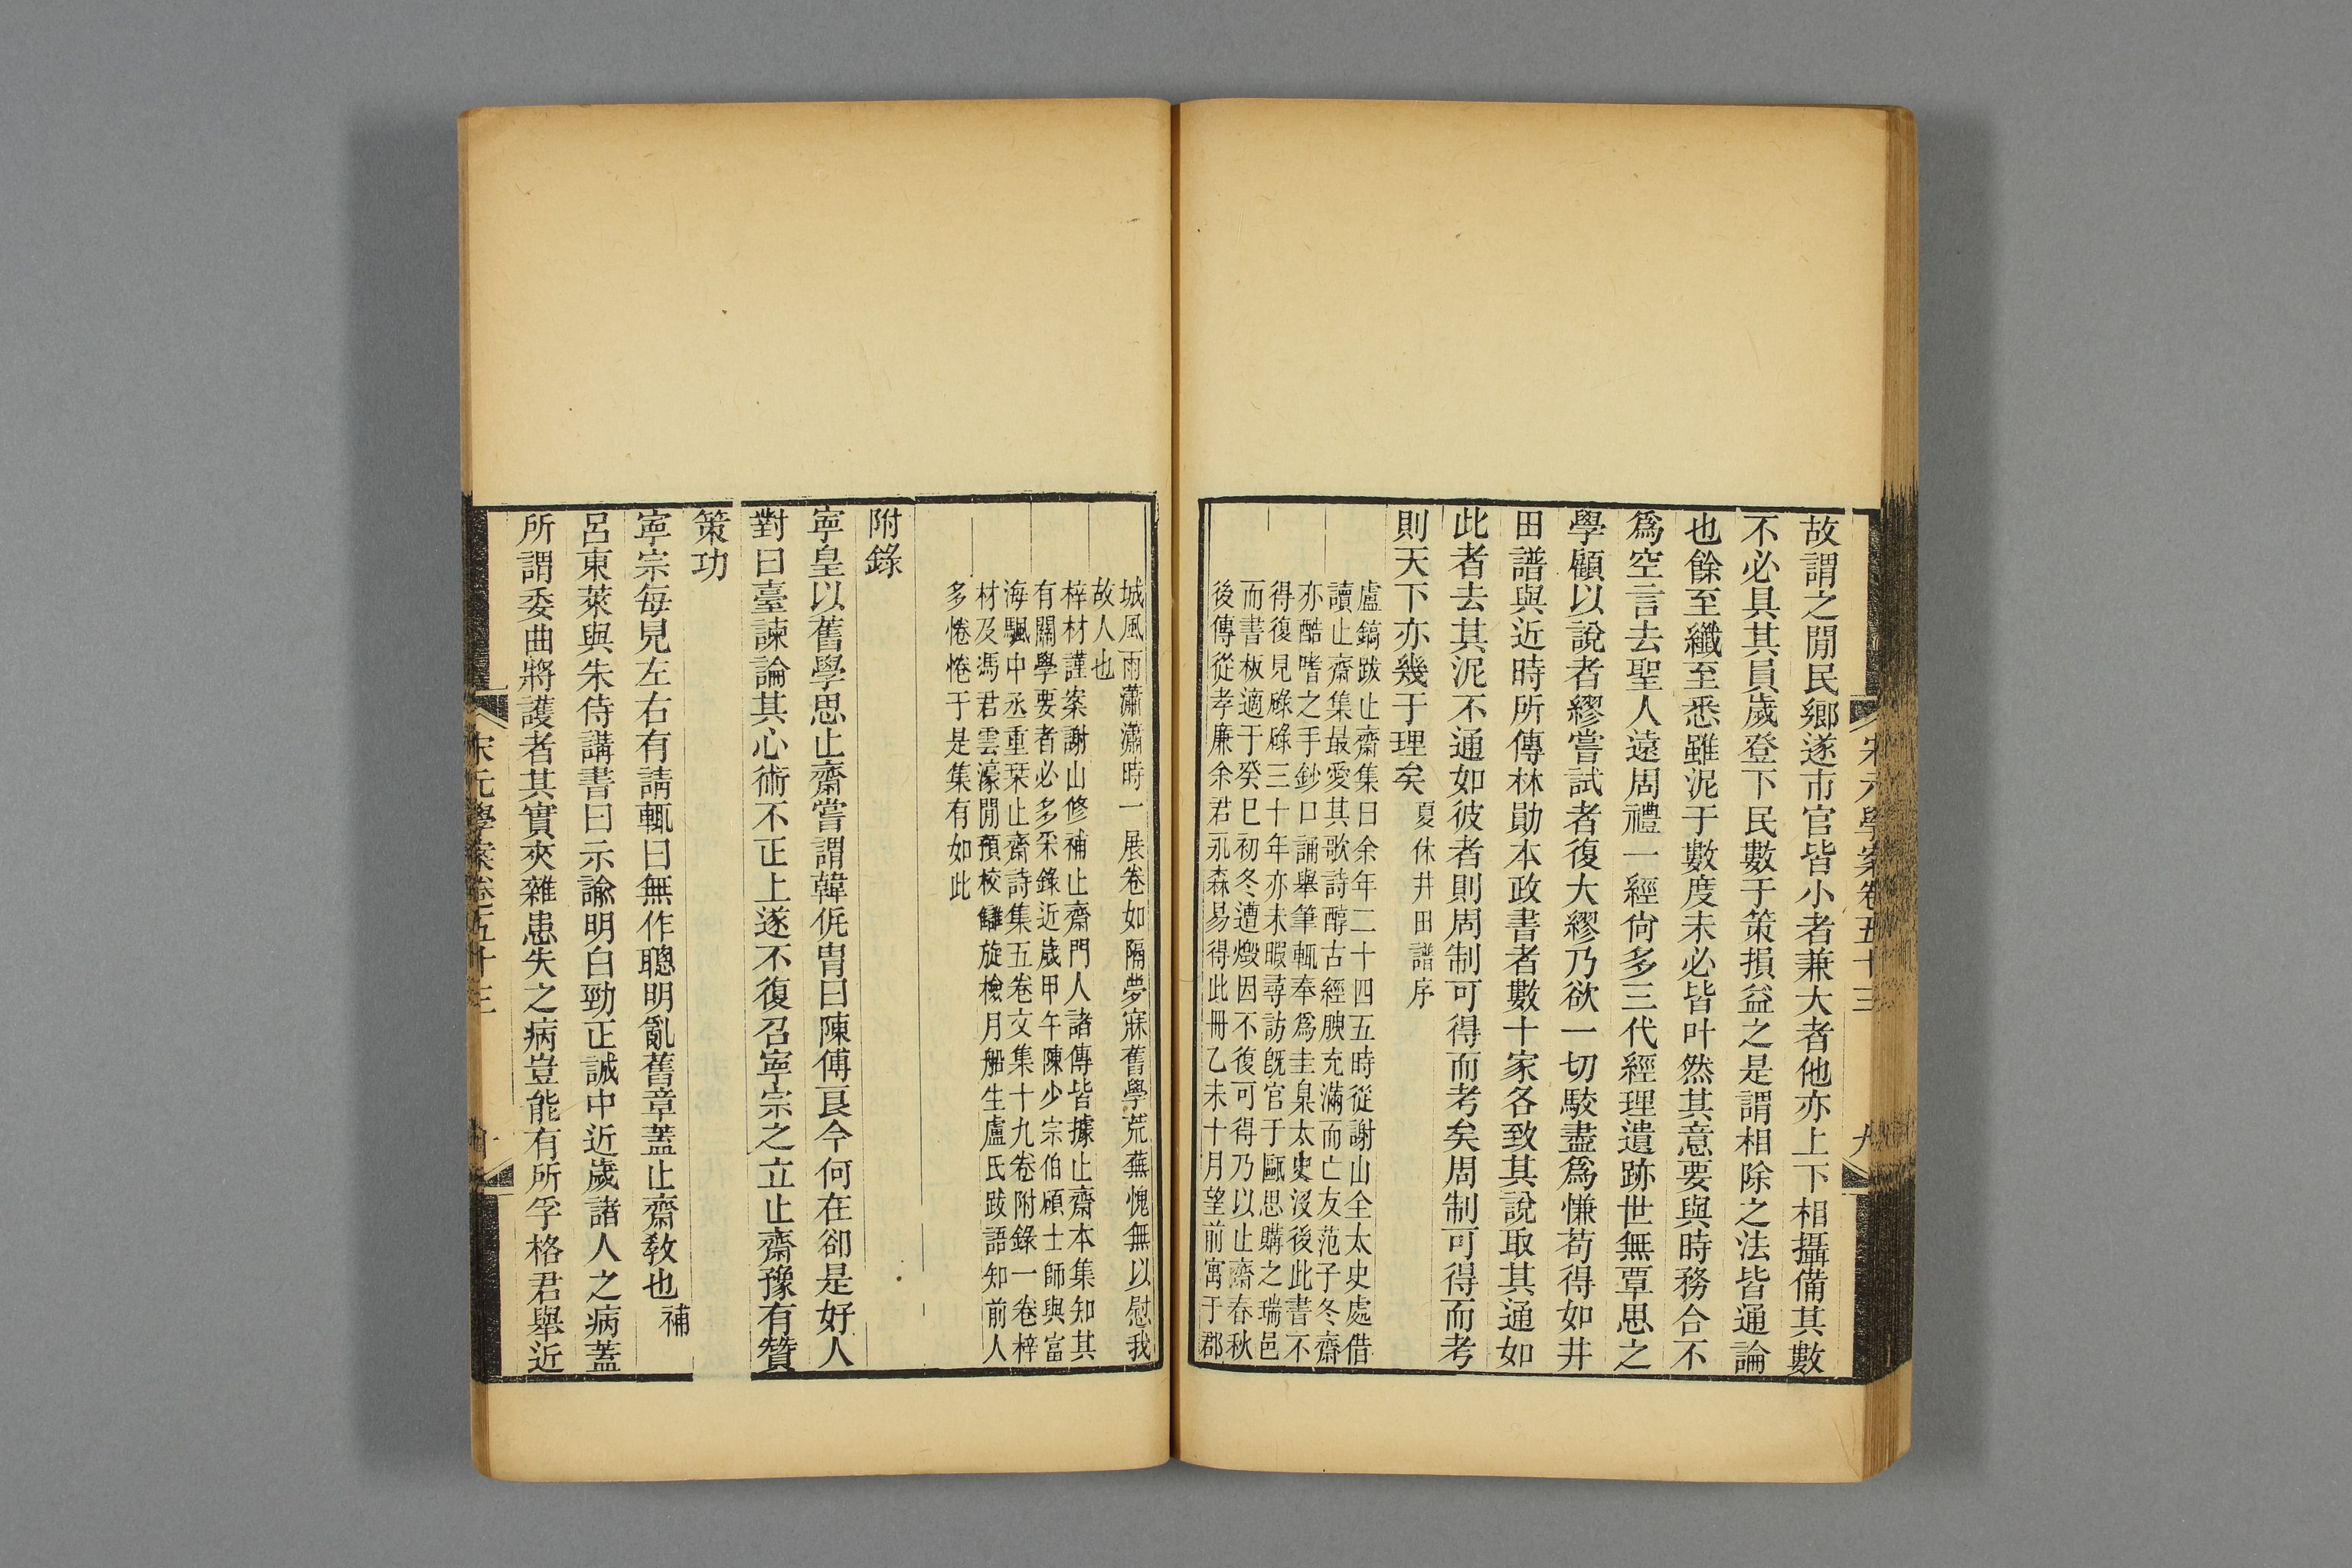 故謂之閒民鄉遂市官皆小者兼大者他亦上下相攝備其數
不必具其員歲登下民數于策損益之是謂相除之法皆通論
也餘至纖至悉雖泥于數度未必皆叶然其意要與時務合不
爲空言去聖人遠周禮一經尙多三代經理遺跡世無覃思之
學顧以說者繆嘗試者復大繆乃欲一切駮盡爲慊苟得如井
田譜與近時所傳林勛本政書者數十家各致其說取其通如
此者去其泥不通如彼者則周制可得而考矣周制可得而考
則天下亦幾于理矣夏休井田譜序
盧鎬跋止齋集曰余年二十四五時從謝山全太史處借
讀止齋集最愛其歌詩醇古經腴充滿而亡友范子冬齋
亦酷嗜之手鈔口誦舉筆輒奉爲圭臬太史沒後此書不
得復見碌碌三十年亦未暇尋訪旣官于甌思購之瑞邑
而書板適于癸巳初冬遭燬因不復可得乃以止齋春秋
後傳從孝廉余君永森易得此冊乙未十月望前寓于郡
宋元學案卷五十三 九
城風雨瀟瀟時一展卷如隔夢寐舊學荒蕪愧無以慰我
故人也
梓材謹案謝山修補止齋門人諸傳皆據止齋本集知其
有關學要者必多采錄近歲甲午陳少宗伯碩士師與富
海颿中丞重栞止齋詩集五卷文集十九卷附錄一卷梓
材及馮君雲濠閒預校讎旋檢月船生盧氏跋語知前人
多惓惓于是集有如此
附錄
寧皇以舊學思止齋嘗謂韓侂胄曰陳傅良今何在卻是好人
對曰臺諫論其心術不正上遂不復召寧宗之立止齋豫有贊
策功
寧宗每見左右有請輒曰無作聰明亂舊章蓋止齋敎也補
呂東萊與朱侍講書曰示諭明白勁正誠中近歲諸人之病蓋
所謂委曲將護者其實夾雜患失之病豈能有所孚格君舉近
宋元學案卷五十三